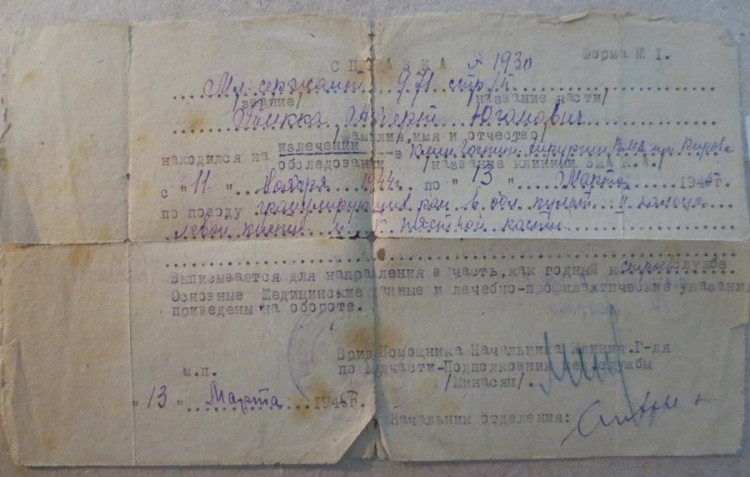 СПРАВКА № 1930 Форма № I.
Мл. сержант 971 стр/п
/звание/ /название части/
Альберт Юганович
/фамилия, имя и отчество/
находился на излечении в Клин. Военной Хирургии ВМА им. Кирова
обследовании /название клиники ВМА К.А./
с "11" Ноября 1944г. по "13" Марта 1945г.
по поводу гранулирующих ран в обл. культ. II пальца
левой кисти и кисти.
Выписывается для направления в часть, как годный к строев. службе
Основные Медицинские данные и лечебно-профилактические указания
приведены на обороте.
Врид Помощника Начальника Клинич. Г-ля
по Медчасти-Подполковник мед.службы
м.п. /Минасян/
"13" Марта 1945г.
Начальник отделения: